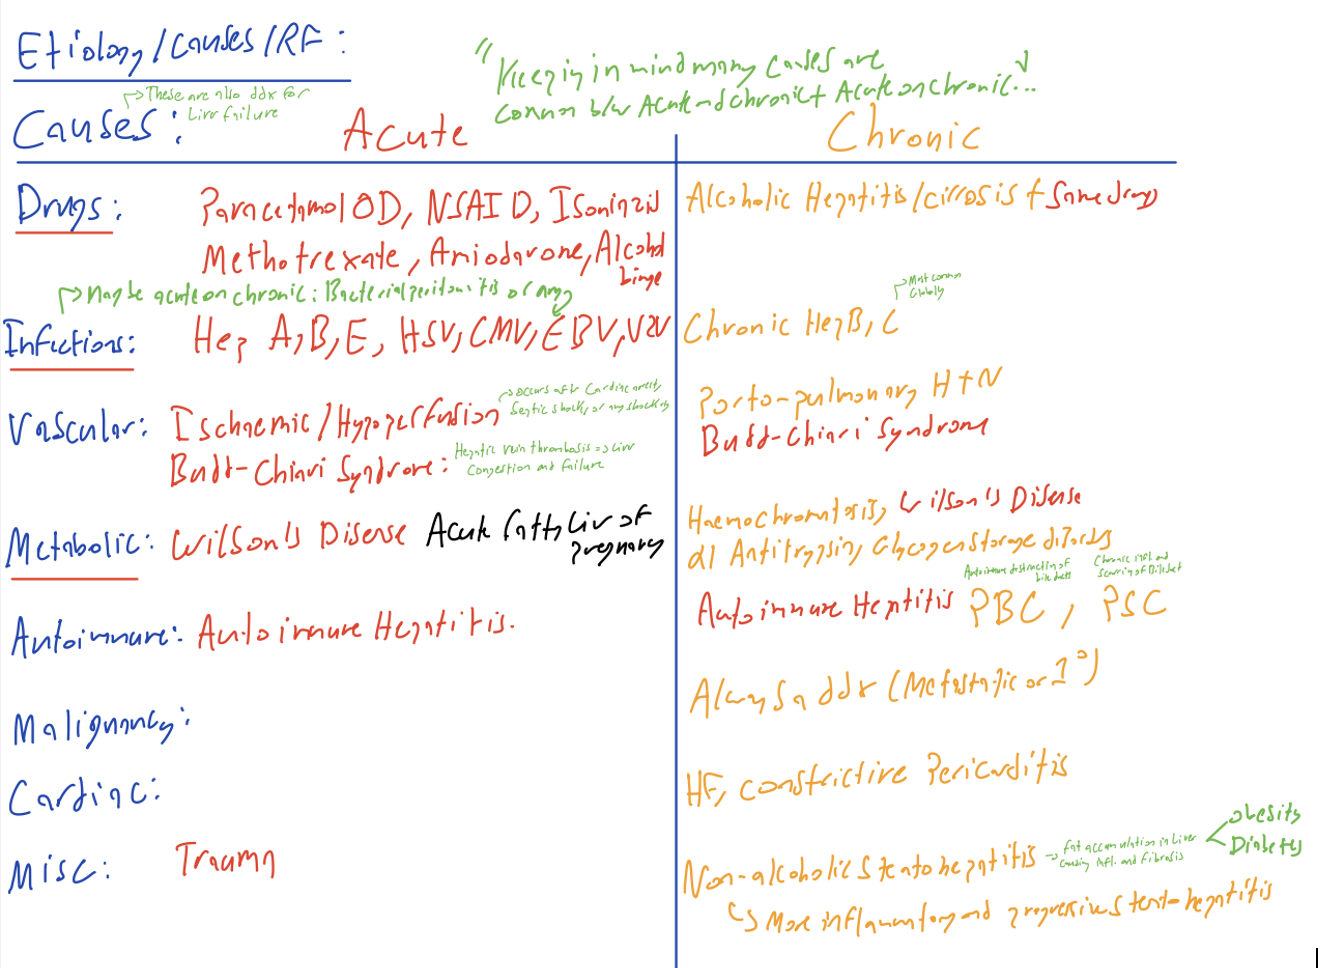 Etiology/Causes/RF:
"Keeping in mind many causes are
common b/w Acute and chronic + Acute on chronic..."
→These are also ddx for
Liver failure
Causes:
Acute
Chronic
Drugs:
Paracetamol OD, NSAID, Isoniazid
Methotrexate, Amiodarone, Alcohol
binge
Alcoholic Hepatitis/cirrosis + Same drugs
→Maybe acute on chronic: Bacterial peritonitis or any
Infections:
Hep A, B, E, HSV, CMV, EBV, VZV
→Most common
Globally
Chronic Hep B, C
Vascular:
Ischaemic/Hypoperfusion
→occurs aft Cardiac arrest,
Septic shock, or any shock
Budd-Chiari Syndrome:
Hepatic vein thrombosis => Liver
Congestion and Failure
Porto-pulmonary HTN
Budd-Chiari Syndrome
Metabolic:
Wilson's Disease
Acute fatty Liv of
pregnancy
Haemochromatosis, Wilson's Disease
α1 Antitrypsin, Glycogen storage disorders
Autoimmune:
Autoimmune Hepatitis.
Autoimmune destruction of
bile ducts
Chronic infl. and
scarring of Bile duct
Autoimmune Heptitis PBC, PSC
Malignancy:
Always a ddx (Metastatic or 1°)
Cardiac:
HF, constrictive Pericarditis
Misc:
Trauma
Non-alcoholic Steatohepatitis
→Fat accumulation in Liver
causing infl. and Fibrosis
obesity
Diabetes
↳ More inflammatory and progressive